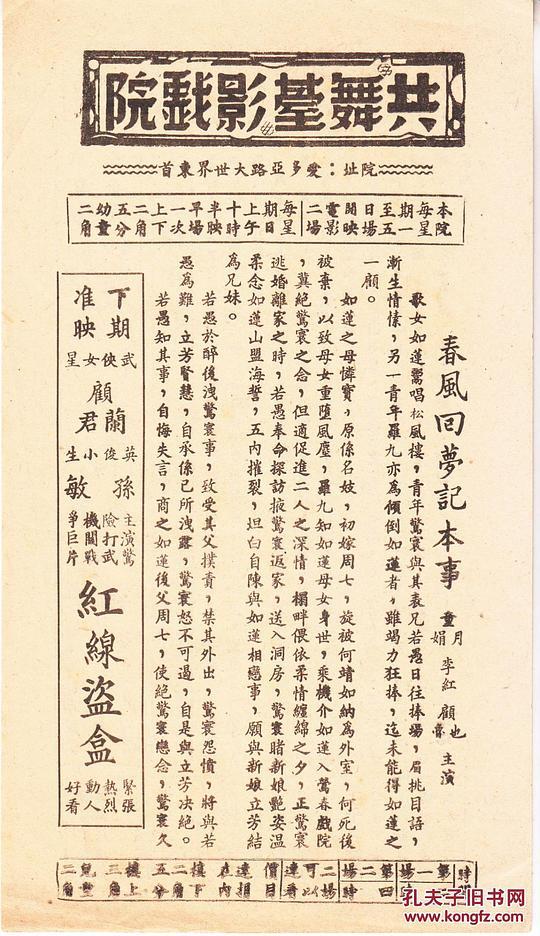 共舞臺影戲院
院址：愛多亞路大世界東首
本院每星期一至五日場開映電影二場
每星期日上午十時半映早場一次上下二角五分幼童二角
春風回夢記本事
童月娟 李紅 顧也魯 主演
歌女如蓮鬻唱松風樓，青年驚寰與其表兄若愚日往捧場，眉挑目語，
漸生情愫，另一青年羅九亦為傾倒如蓮者，雖竭力狂捧，迄未能得如蓮之
一顧。
如蓮之母憐寶，原係名妓，初嫁周七，旋被何靖如納為外室，何死後
被棄，以致母女重墮風塵，羅九知如蓮母女身世，乘機介如蓮入鶯春戲院
，冀絕驚寰之念，但適促進二人之深情，榻畔偎依柔情纏綿之夕，正驚寰
逃婚離家之時，若愚奉命探訪掖驚寰返家，送入洞房，驚寰睹新娘艷姿溫
柔念如蓮山盟海誓，五內摧裂，坦白自陳與如蓮相戀事，願與新娘立芳結
為兄妹。
若愚於醉後洩驚寰事，致受其父撲責，禁其外出，驚寰怨憤，將與若
愚為難，立芳賢慧，自承係已所洩露，驚寰怒不可遏，自是與立芳决絕。
若愚知其事，自悔失言，商之如蓮後父周七，使絕驚寰戀念，驚寰久
下期准映
武俠女星
顧蘭君
英俊小生
孫敏
主演驚險打武機關戰爭巨片
紅線盜盒
緊張熱烈動人好看
二場可以連看
價目
樓下二角五分
樓上三角
兒童二角
孔夫子旧书网
www.kongfz.com